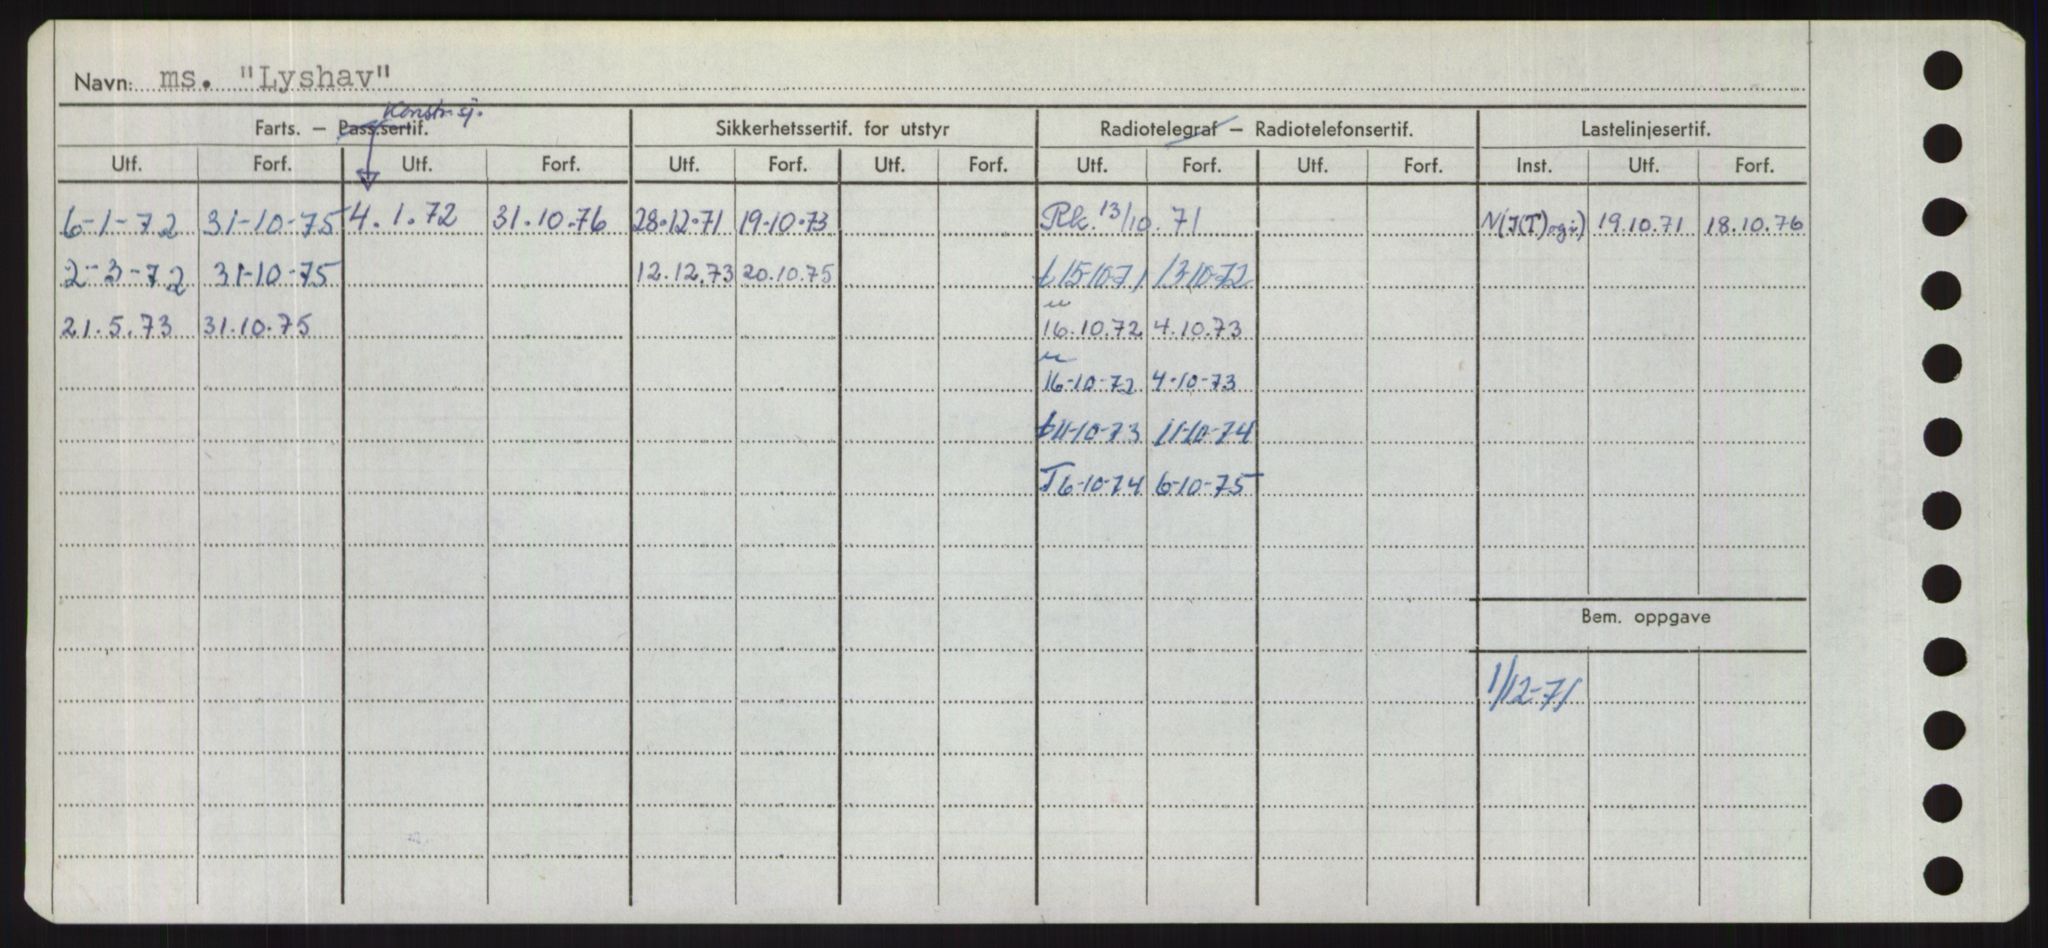 Navn: ms. "Lyshav"
Konstr.sj.
Farts. – Pass.sertif. Sikkerhetssertif. for utstyr Radiotelegraf – Radiotelefonsertif. Lastelinjesertif.
Utf. Forf. Utf. Forf. Utf. Forf. Utf. Forf. Utf. Forf. Utf. Forf. Inst. Utf. Forf.
6-1-72 31-10-75 4.1.72 31.10.76 28.12.71 19.10.73 Rk. 13/10.71 19.10.71 18.10.76
2-3-72 31-10-75 12.12.73 20.10.75 t 15-10-71 13-10-72
21.5.73 31.10.75 16.10.72 4.10.73
16-10-72 4-10-73
t 11-10-73 11-10-74
T 6-10-74 6-10-75
Bem. oppgave
1/12-71